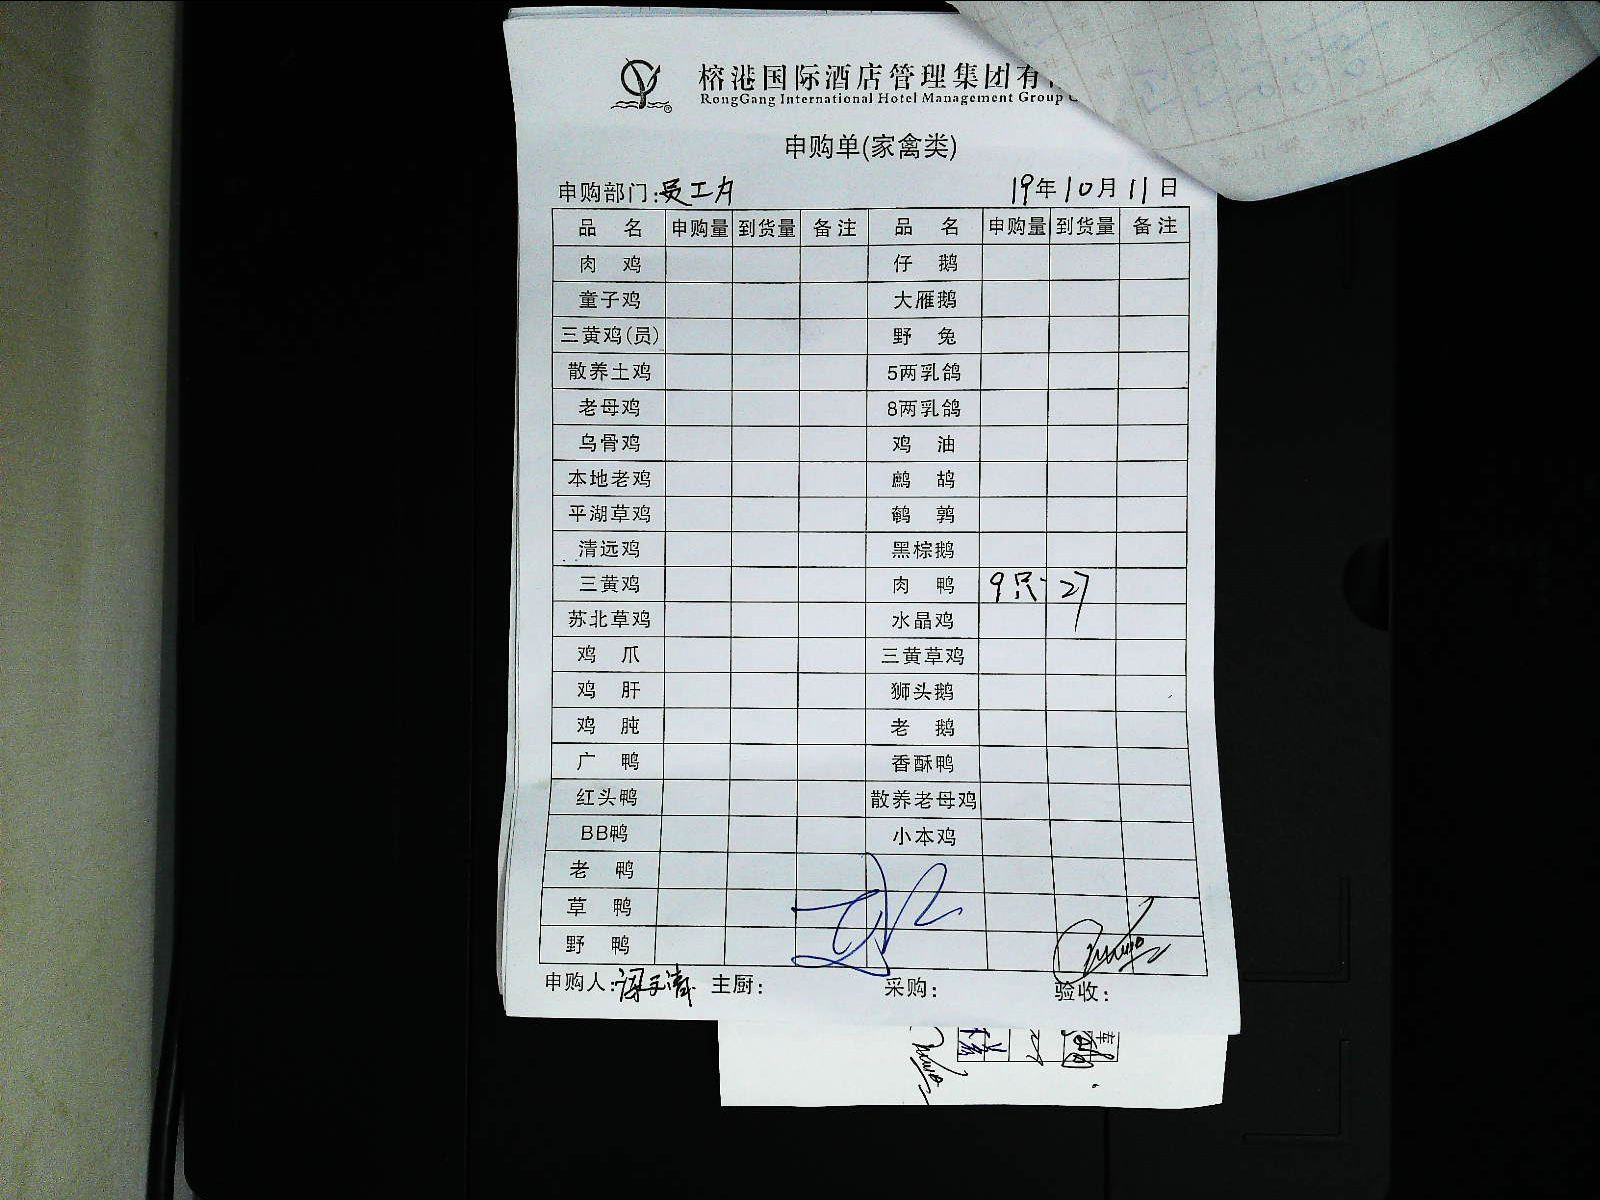 榕港国际酒店管理集团有
RongGang International Hotel Management Group
申购单(家禽类)
申购部门:员工 19年10月11日
品名 申购量 到货量 备注 品名 申购量 到货量 备注
肉鸡 仔鹅
童子鸡 大雁鹅
三黄鸡(员) 野兔
散养土鸡 5两乳鸽
老母鸡 8两乳鸽
乌骨鸡 鸡油
本地老鸡 鹧鸪
平湖草鸡 鹌鹑
清远鸡 黑棕鹅
三黄鸡 肉鸭 9只 27
苏北草鸡 水晶鸡
鸡爪 三黄草鸡
鸡肝 狮头鹅
鸡肫 老鹅
广鸭 香酥鸭
红头鸭 散养老母鸡
BB鸭 小本鸡
老鸭
草鸭
野鸭
申购人: 主厨: 采购: 验收: